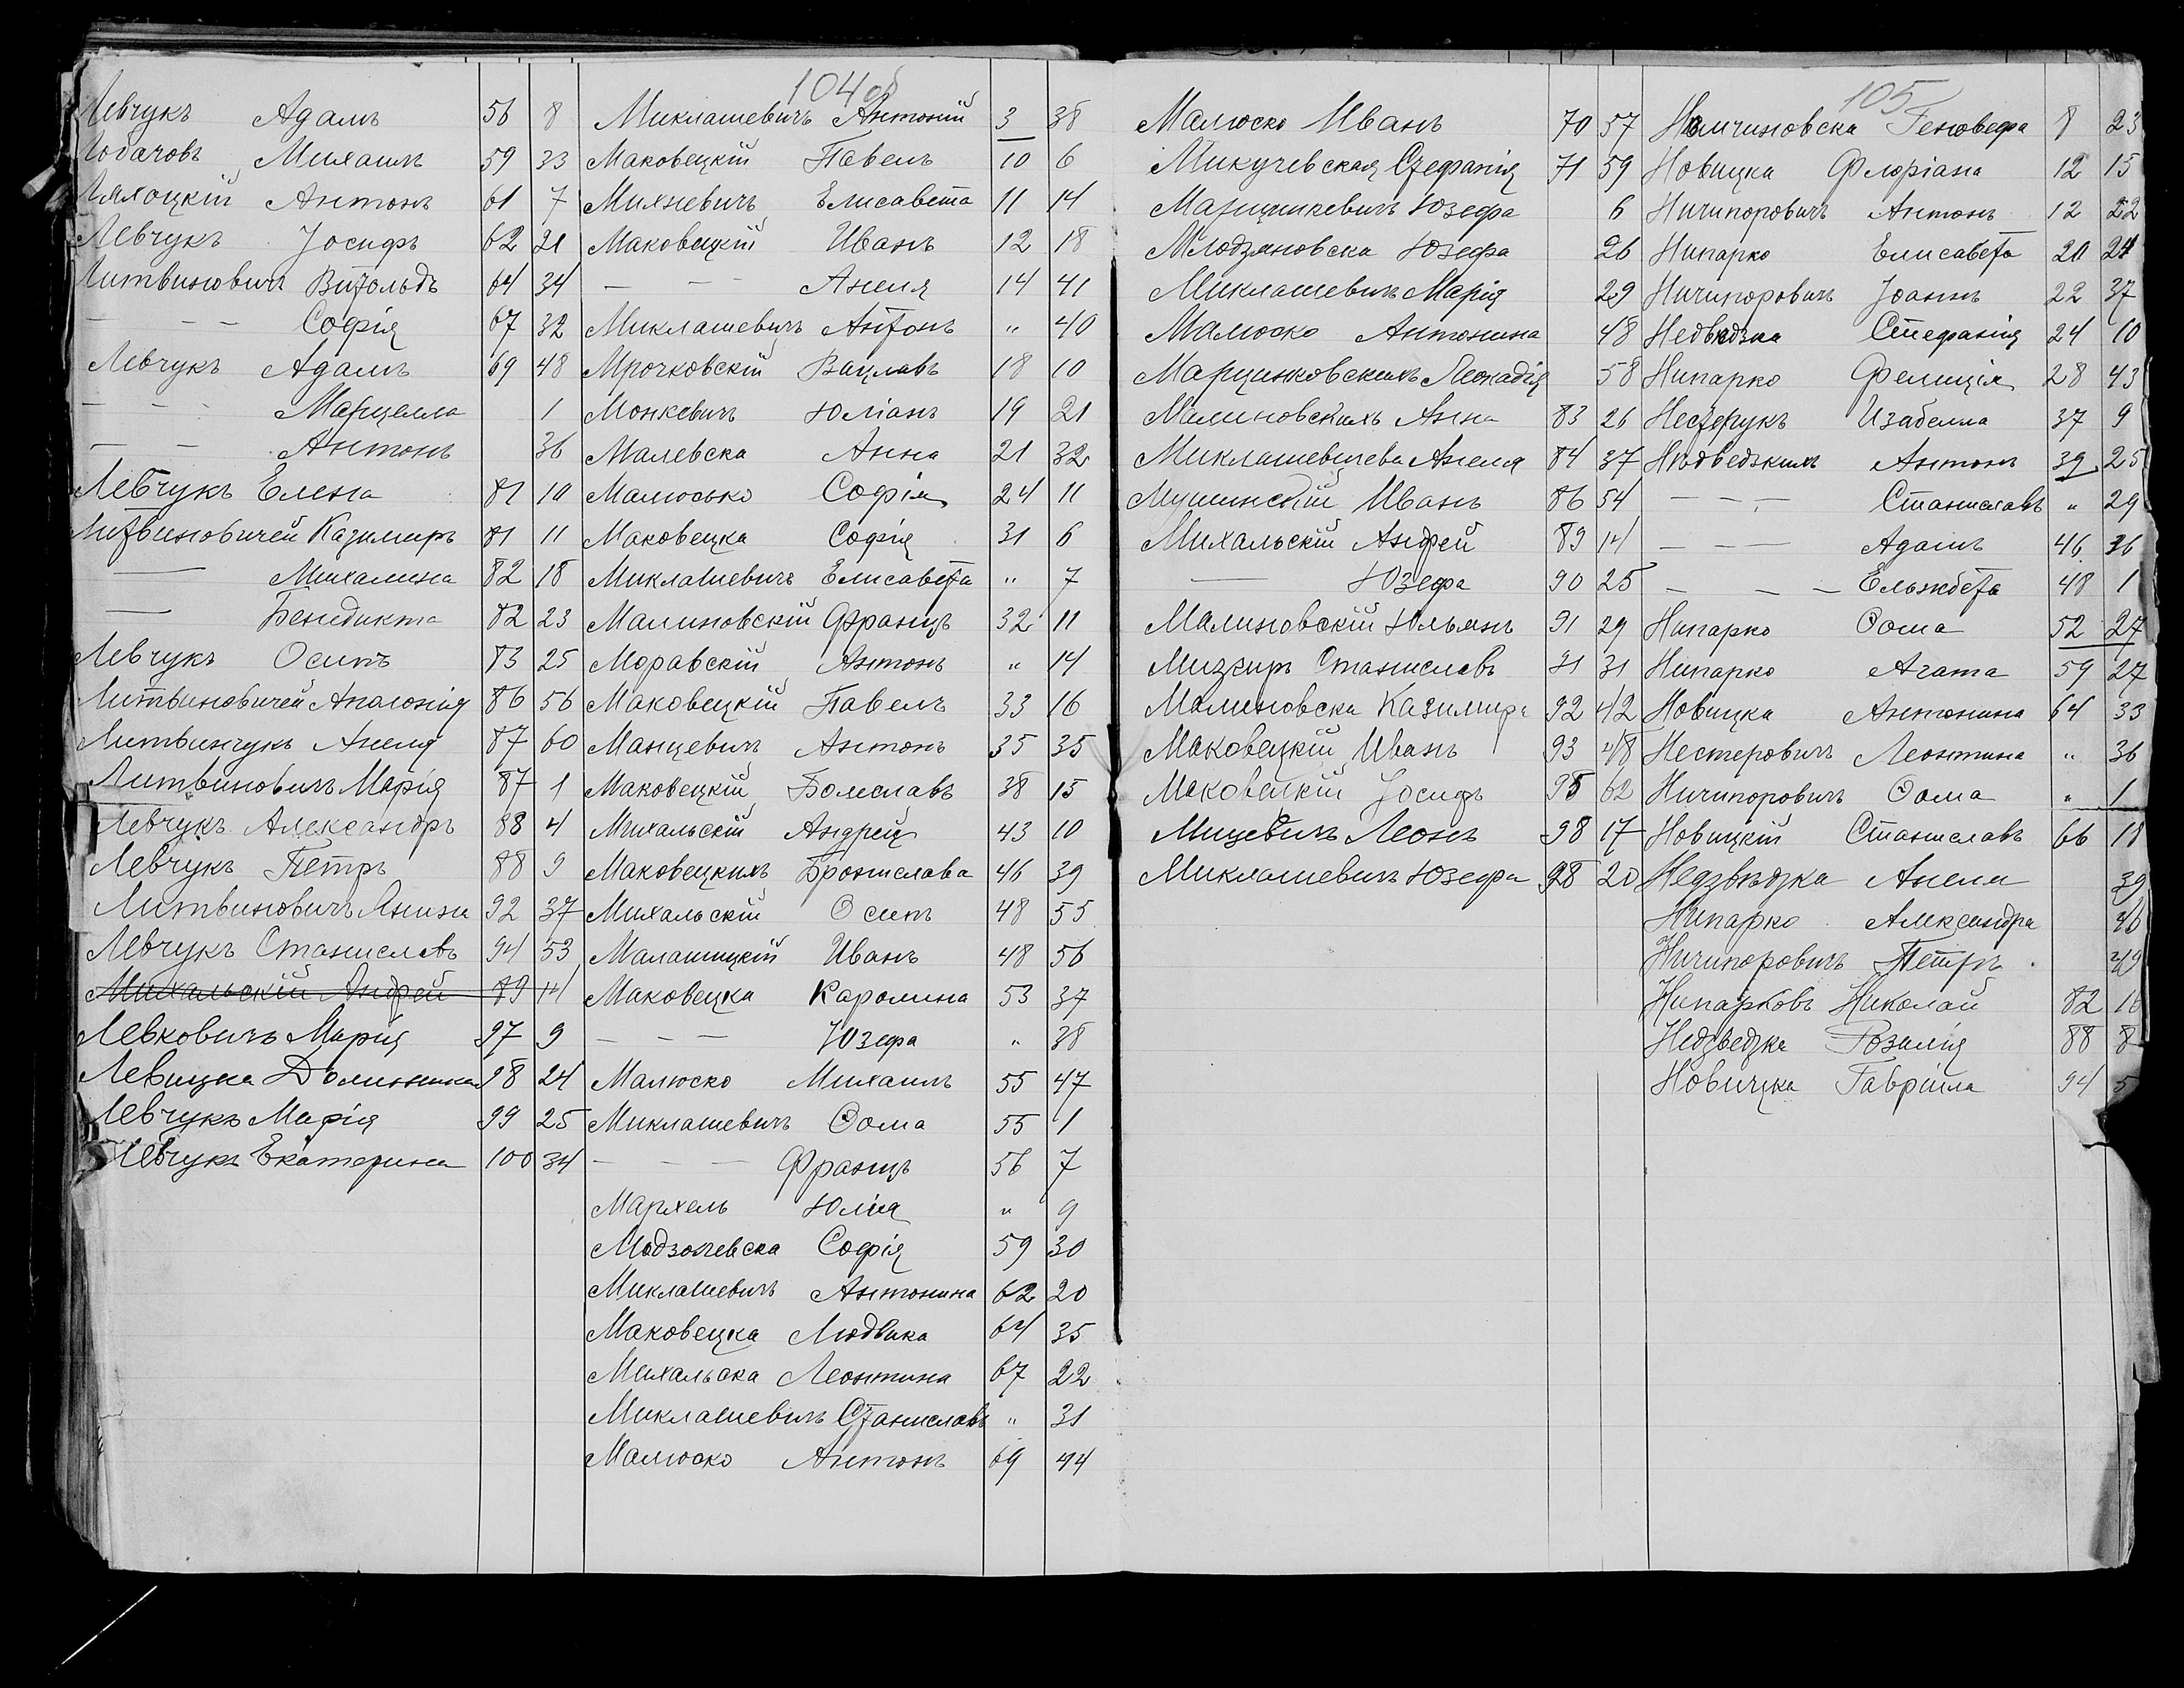 104 об
Левчукъ Адамъ 56 8
Лобачовъ Михаилъ 59 33
Антонъ 61 7
Левчукъ Іосифъ 62 21
Литвиновичъ Витольдъ 64 34
— — — Софія 67 32
Левчукъ Адамъ 69 48
— — — Марцелла 1
— — Антонъ 36
Левчукъ Елена 81 10
Литвиновичей Казимиръ 81 11
— Михалина 82 18
— Бенедикта 82 23
Левчукъ Осипъ 83 25
Литвиновичей Аполонія 86 56
Литвинчукъ Анеля 87 60
Литвиновичъ Марія 87 1
Левчукъ Александръ 88 4
Левчукъ Петръ 88 9
Литвиновичъ Янина 92 37
Левчукъ Станиславъ 94 53
Михальскій Андрей 89 14
Левковичъ Марія 97 9
Левицка Доминика 98 24
Левчукъ Марія 99 25
Левчукъ Екатерина 100 34
Миклашевичъ Антоній 3 38
Маковецкій Павелъ 10 6
Михневичъ Елисавета 11 14
Маковецкій Иванъ 12 18
— — Анеля 14 41
Миклашевичъ Антонъ " 40
Мрочковскій Вацлавъ 18 10
Монкевичъ Юліанъ 19 21
Малевска Анна 21 32
Малюсько Софія 24 11
Маковецка Софія 31 6
Миклашевичъ Елисавета " 7
Малиновскій Францъ 32 11
Моравскій Антонъ " 14
Маковецкій Павелъ 33 16
Манцевичъ Антонъ 35 35
Маковецкій Болеславъ 38 15
Михальскій Андрей 43 10
Маковецкихъ Брониславa 46 39
Михальскій Осипъ 48 55
Малашицкій Иванъ 48 56
Маковецка Каролина 53 37
— — — Юзефа " 38
Малюско Михаилъ 55 47
Миклашевичъ Ѳома 55 1
— — — Францъ 56 7
Мархель Юлія " 9
Модзолевска Софія 59 30
Миклашевичъ Антонина 62 20
Маковецка Людвика 64 35
Михальска Леонтина 67 22
Миклашевичъ Станиславъ " 31
Малюско Антонъ 69 44
105
Малюско Иванъ 70 57
Микучевская Стефанія 71 59
Марцинкевичъ Юзефа 6
Млодзяновска Юзефа 26
Миклашевичъ Марія 29
Малюско Антонина 48
Марцинковскихъ Леокадія 58
Малиновскихъ Анна 83 26
Миклашевичева Анеля 84 37
Мушинскій Иванъ 86 54
Михальскій Андрей 89 14
— Юзефа 90 25
Малиновскій Юльянъ 91 29
Мизгиръ Станиславъ 91 31
Малиновска Казимира 92 42
Маковецкій Иванъ 93 48
Маковецкій Іосифъ 95 62
Мицевичъ Леонъ 98 17
Миклашевичъ Юзефа 98 20
Намчиновска Геновефа 8 23
Новицка Флоріана 12 15
Ничипоровичъ Антонъ 12 22
Нипарко Елисавета 20 24
Ничипоровичъ Іоаннъ 22 37
Недведзка Стефанія 24 10
Нипарко Фелиція 28 43
Нестерукъ Изабелла 37 9
Нѣдведзкихъ Антонъ 39 25
— — — Станиславъ " 29
— — — Адамъ 46 36
— — — Ельжбета 48 1
Нипарко Ѳома 52 27
Нипарко Агата 59 27
Новицка Антонина 64 33
Нестеровичъ Леонтина " 36
Ничипоровичъ Ѳома " 1
Новицкій Станиславъ 66 18
Недзвѣдзка Анеля 39
Нипарко Александра 46
Ничипоровичъ Петръ 49
Нипарковъ Николай 82 16
Недзведзка Розалія 88 8
Новицка Габріела 94 5